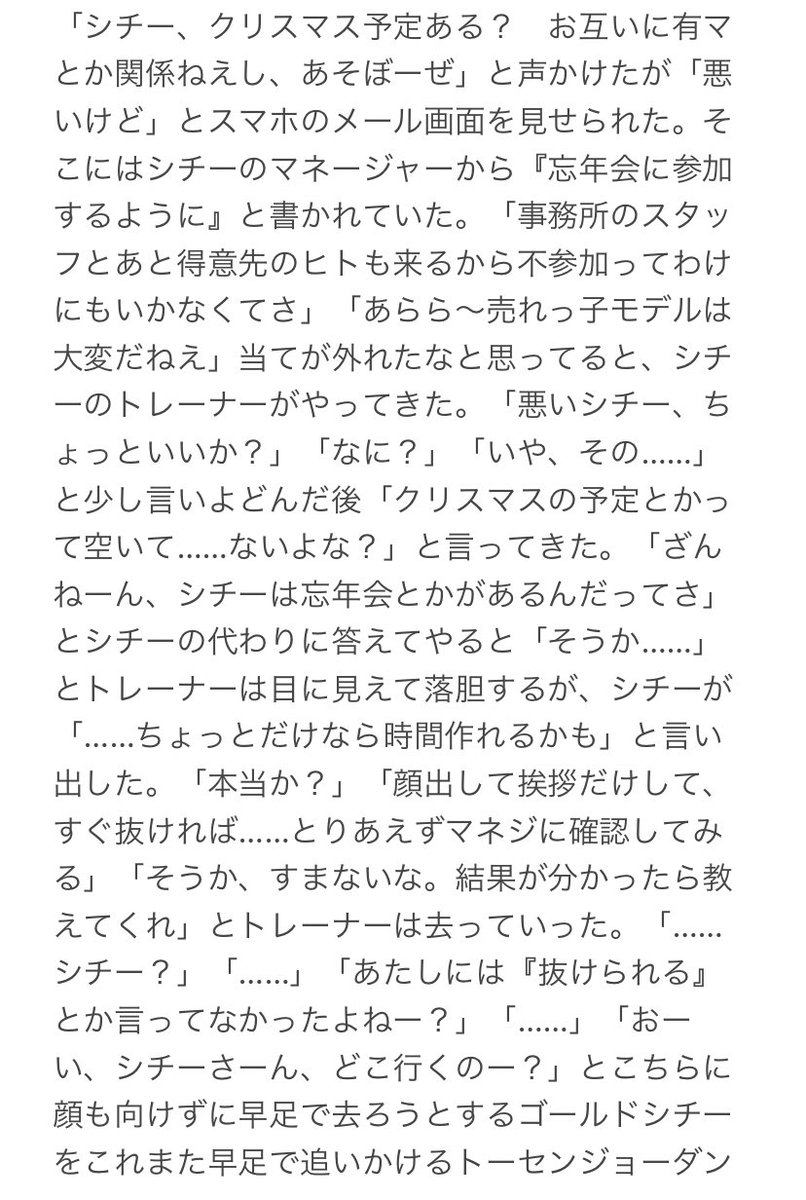 「シチー、クリスマス予定ある？　お互いに有マ
とか関係ねえし、あそぼーぜ」と声かけたが「悪
いけど」とスマホのメール画面を見せられた。そ
こにはシチーのマネージャーから『忘年会に参加
するように』と書かれていた。「事務所のスタッ
フとあと得意先のヒトも来るから不参加ってわけ
にもいかなくてさ」「あらら〜売れっ子モデルは
大変だねえ」当てが外れたなと思ってると、シチ
ーのトレーナーがやってきた。「悪いシチー、ち
ょっといいか？」「なに？」「いや、その……」
と少し言いよどんだ後「クリスマスの予定とかっ
て空いて……ないよな？」と言ってきた。「ざん
ねーん、シチーは忘年会とかがあるんだってさ」
とシチーの代わりに答えてやると「そうか……」
とトレーナーは目に見えて落胆するが、シチーが
「……ちょっとだけなら時間作れるかも」と言い
出した。「本当か？」「顔出して挨拶だけして、
すぐ抜ければ……とりあえずマネジに確認してみ
る」「そうか、すまないな。結果が分かったら教
えてくれ」とトレーナーは去っていった。「……
シチー？」「……」「あたしには『抜けられる』
とか言ってなかったよねー？」「……」「おー
い、シチーさーん、どこ行くのー？」とこちらに
顔も向けずに早足で去ろうとするゴールドシチー
をこれまた早足で追いかけるトーセンジョーダン